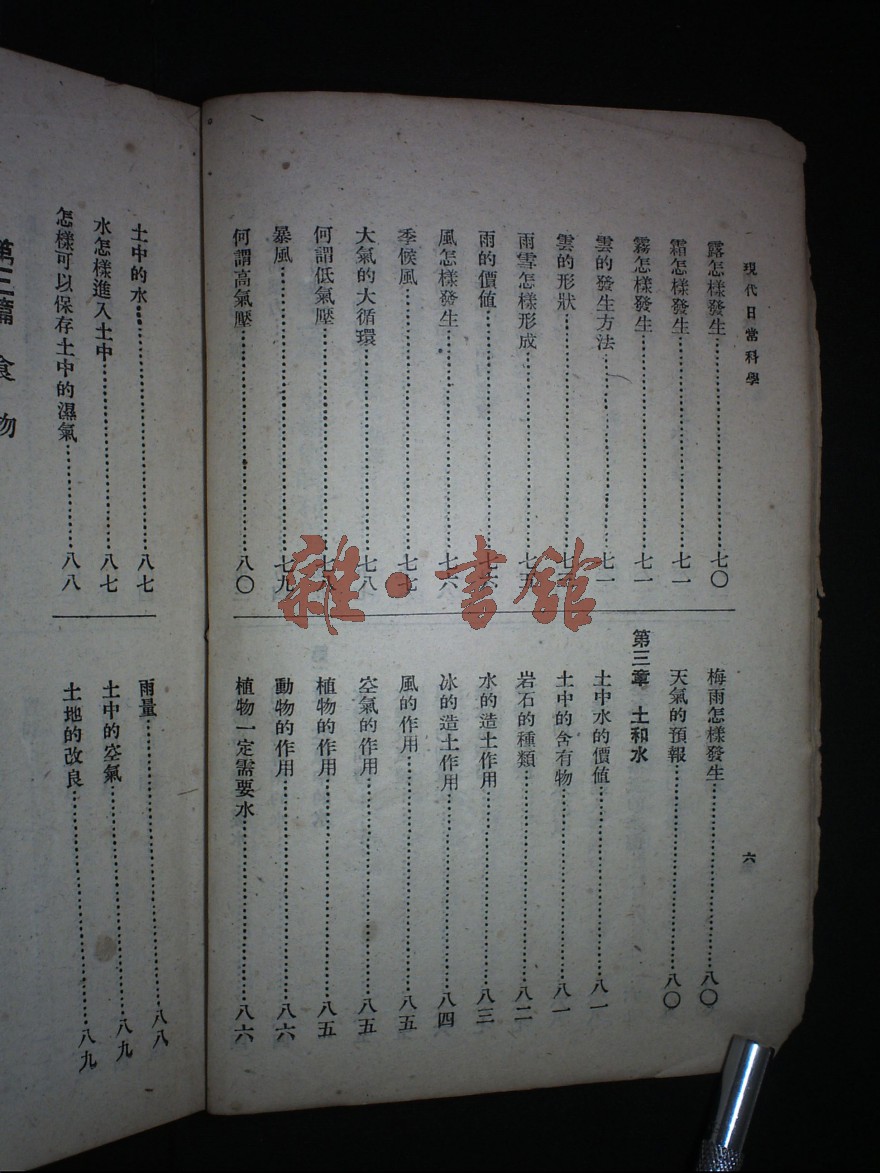 現代日常科學
六
露怎樣發生……七〇
霜怎樣發生……七一
霧怎樣發生……七一
雲的發生方法……七一
雲的形狀……
雨雪怎樣形成……七五
雨的價值……七六
風怎樣發生……七六
季候風……七七
大氣的大循環……七八
何謂低氣壓……七八
暴風……七九
何謂高氣壓……八〇
梅雨怎樣發生……八〇
天氣的預報……八〇
第三章 土和水
土中水的價值……八一
土中的含有物……八一
岩石的種類……八二
水的造土作用……八三
冰的造土作用……八四
風的作用……八五
空氣的作用……八五
植物的作用……八五
動物的作用……八六
植物一定需要水……八六
土中的水……八七
水怎樣進入土中……八七
怎樣可以保存土中的濕氣……八八
雨量……八八
土中的空氣……八九
土地的改良……八九
第三篇 食物
雜·書館